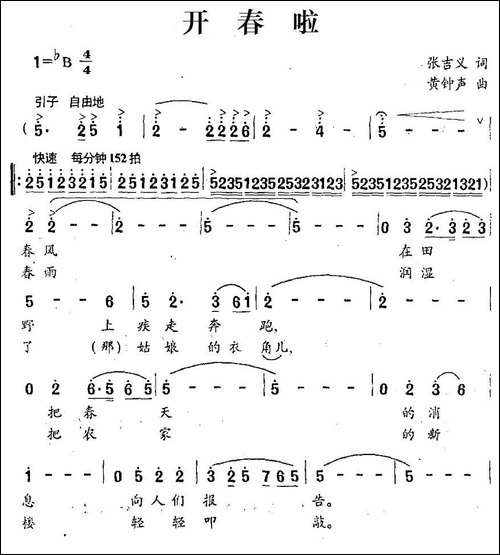 开春啦
1=♭B 4/4
张吉义 词
黄钟声 曲
引子 自由地
( 5· 2 5 1 | 2 - 2 2 2 6 | 2 - 4 - | 5 - - - ∨
快速 每分钟152拍
‖: 2 5 1 2 3 2 1 5 | 2 5 1 2 3 2 1 5 | 5235125352353212 3 | 5235123525321321) |
2 2 - - | 2 - - 5 | 5 - - 5 | 5 - - - | 0 3 2· 3 2 3 |
春风 在田
春雨 润湿
5 - - 6 | 5 2· 3 6 1 | 2 - - - | 2 - - - |
野 上疾走奔 跑,
了 (那)姑娘的衣 角儿,
0 2 6· 5 6 5 | 5 - - - | 5 - - - | 0 2 3 6 |
把春 天 的消
把农 家 的新
1 - - - | 0 5 2 2 | 3 2 5 7 6 5 | 5 - - - | 5 - - - |
息 向人们报 告。
楼 轻轻叩 敲。